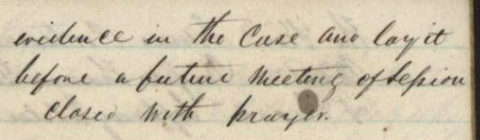 evidence in the Case and lay it
before a future Meeting of Session
closed with prayer.